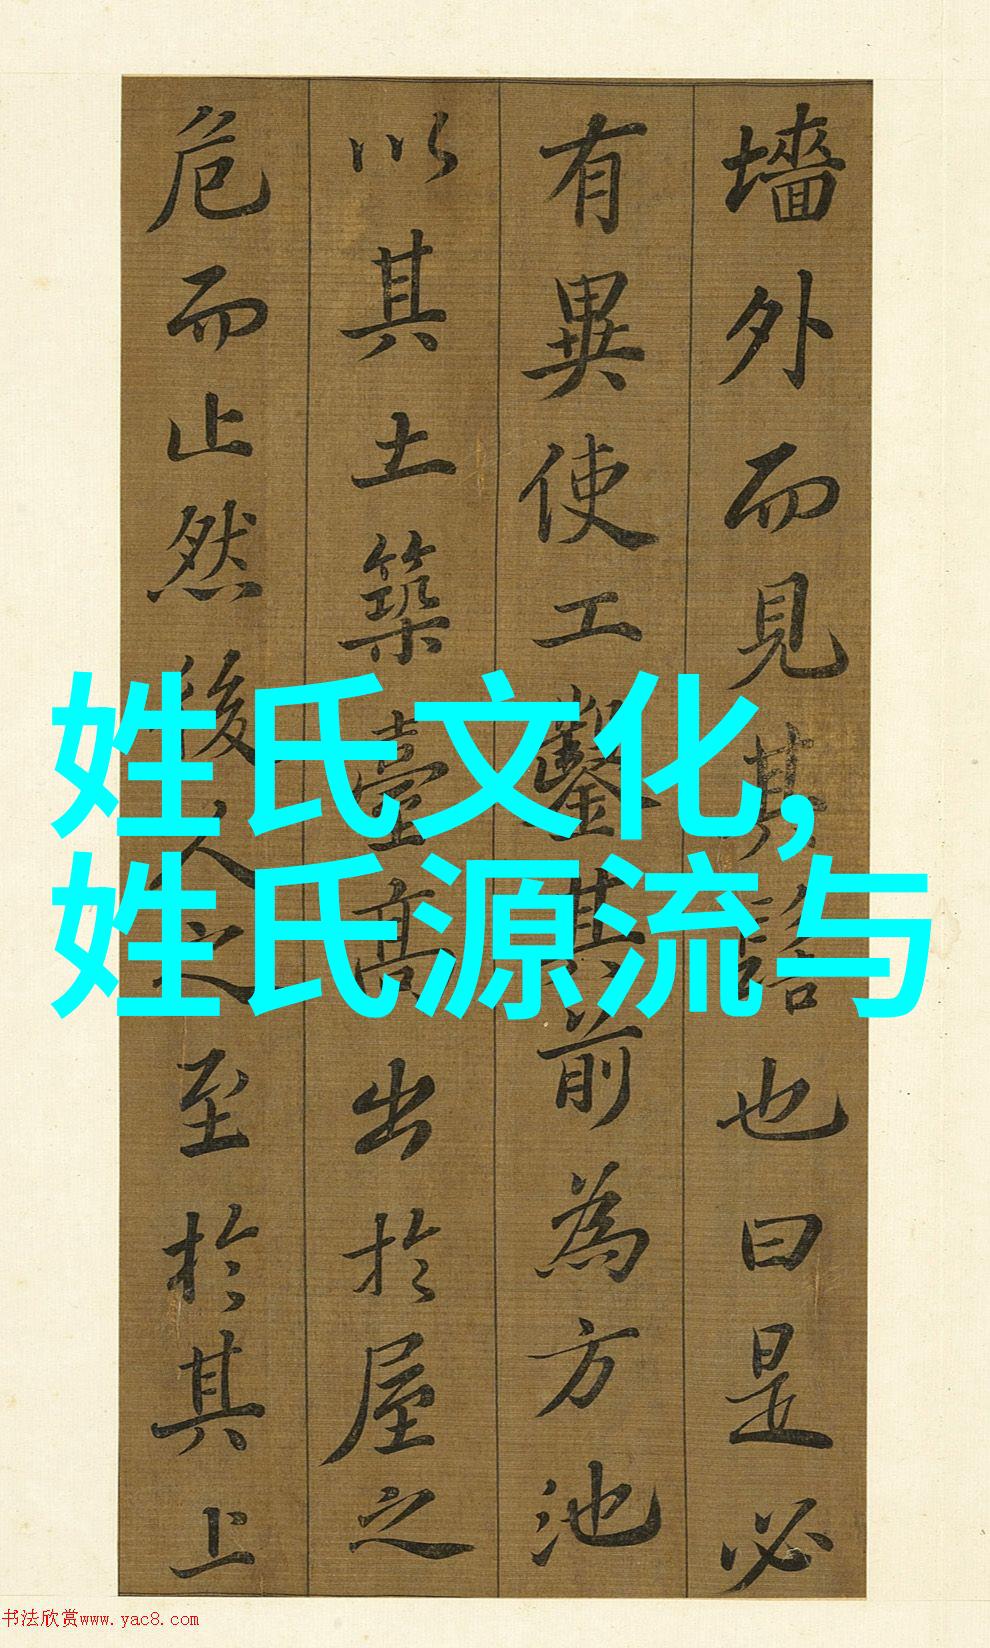 墻外而見其髻也曰是必
有異使工鑿其前為方池
以其土築臺高出於屋之
危而止然後人之至於其上
姓氏文化,
姓氏源流与
书法欣赏www.yac8.com